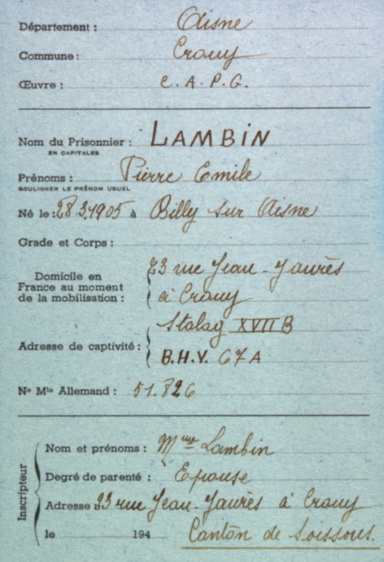 Département : Aisne
Commune : Crouy
Œuvre : C.A.P.G.
Nom du Prisonnier : LAMBIN
EN CAPITALES
Prénoms : Pierre Emile
SOULIGNER LE PRÉNOM USUEL
Né le : 28.3.1905 à Billy sur Aisne
Grade et Corps :
Domicile en
France au moment
de la mobilisation :
23 rue Jean-Jaurès
à Crouy
Adresse de captivité :
Stalag XVII B
B.H.V. 67A
N° Mle Allemand : 51.826
Inscripteur
Nom et prénoms : Mme Lambin
Degré de parenté : Epouse
Adresse 23 rue Jean-Jaurès à Crouy
le 194 Canton de Soissons.